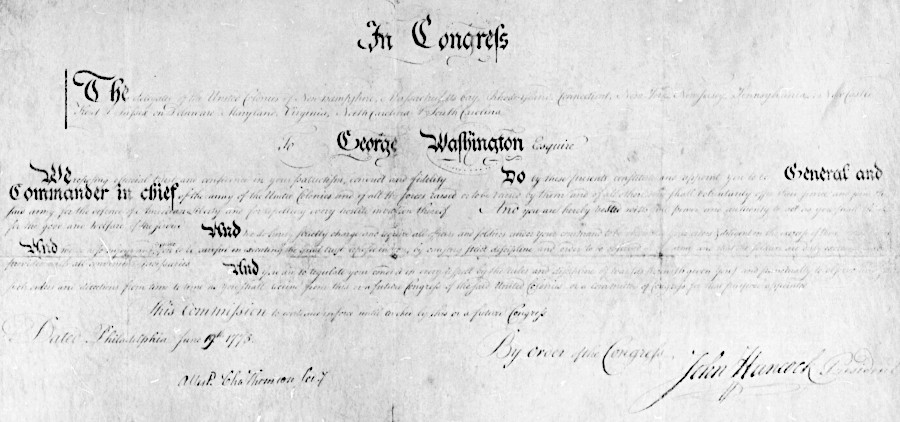 In Congress
The delegates of the United Colonies of New Hampshire, Massachusetts Bay, Rhode Island, Connecticut, New York, New Jersey, Pennsylvania, New Castle
Kent & Sussex on Delaware, Maryland, Virginia, North Carolina & South Carolina
To George Washington Esquire
We reposing especial trust and confidence in your patriotism, conduct and fidelity Do by these presents constitute and appoint you to be General and
Commander in chief, of the army of the United Colonies and of all the forces raised or to be raised by them and of all others who shall voluntarily offer their service and join the
said army for the defence of American liberty and for repelling every hostile invasion thereof And you are hereby vested with full power and authority to act as you shall think
for the good and welfare of the service
And we do hereby strictly charge and require all officers and soldiers under your command to be
And to be careful in executing the great trust reposed in you, by causing strict discipline and order to be observed in the army
all convenient necessaries
And you are to regulate your conduct in every respect by the rules and discipline of war and punctually to observe
such orders and directions from time to time as you shall receive from this or a future Congress of the said United Colonies or a committee of Congress for that purpose appointed
This Commission to continue in force until revoked by this or a future Congress
Dated Philadelphia June 19th 1775.
By order of the Congress
Attest. Cha Thomson Secy
John Hancock President